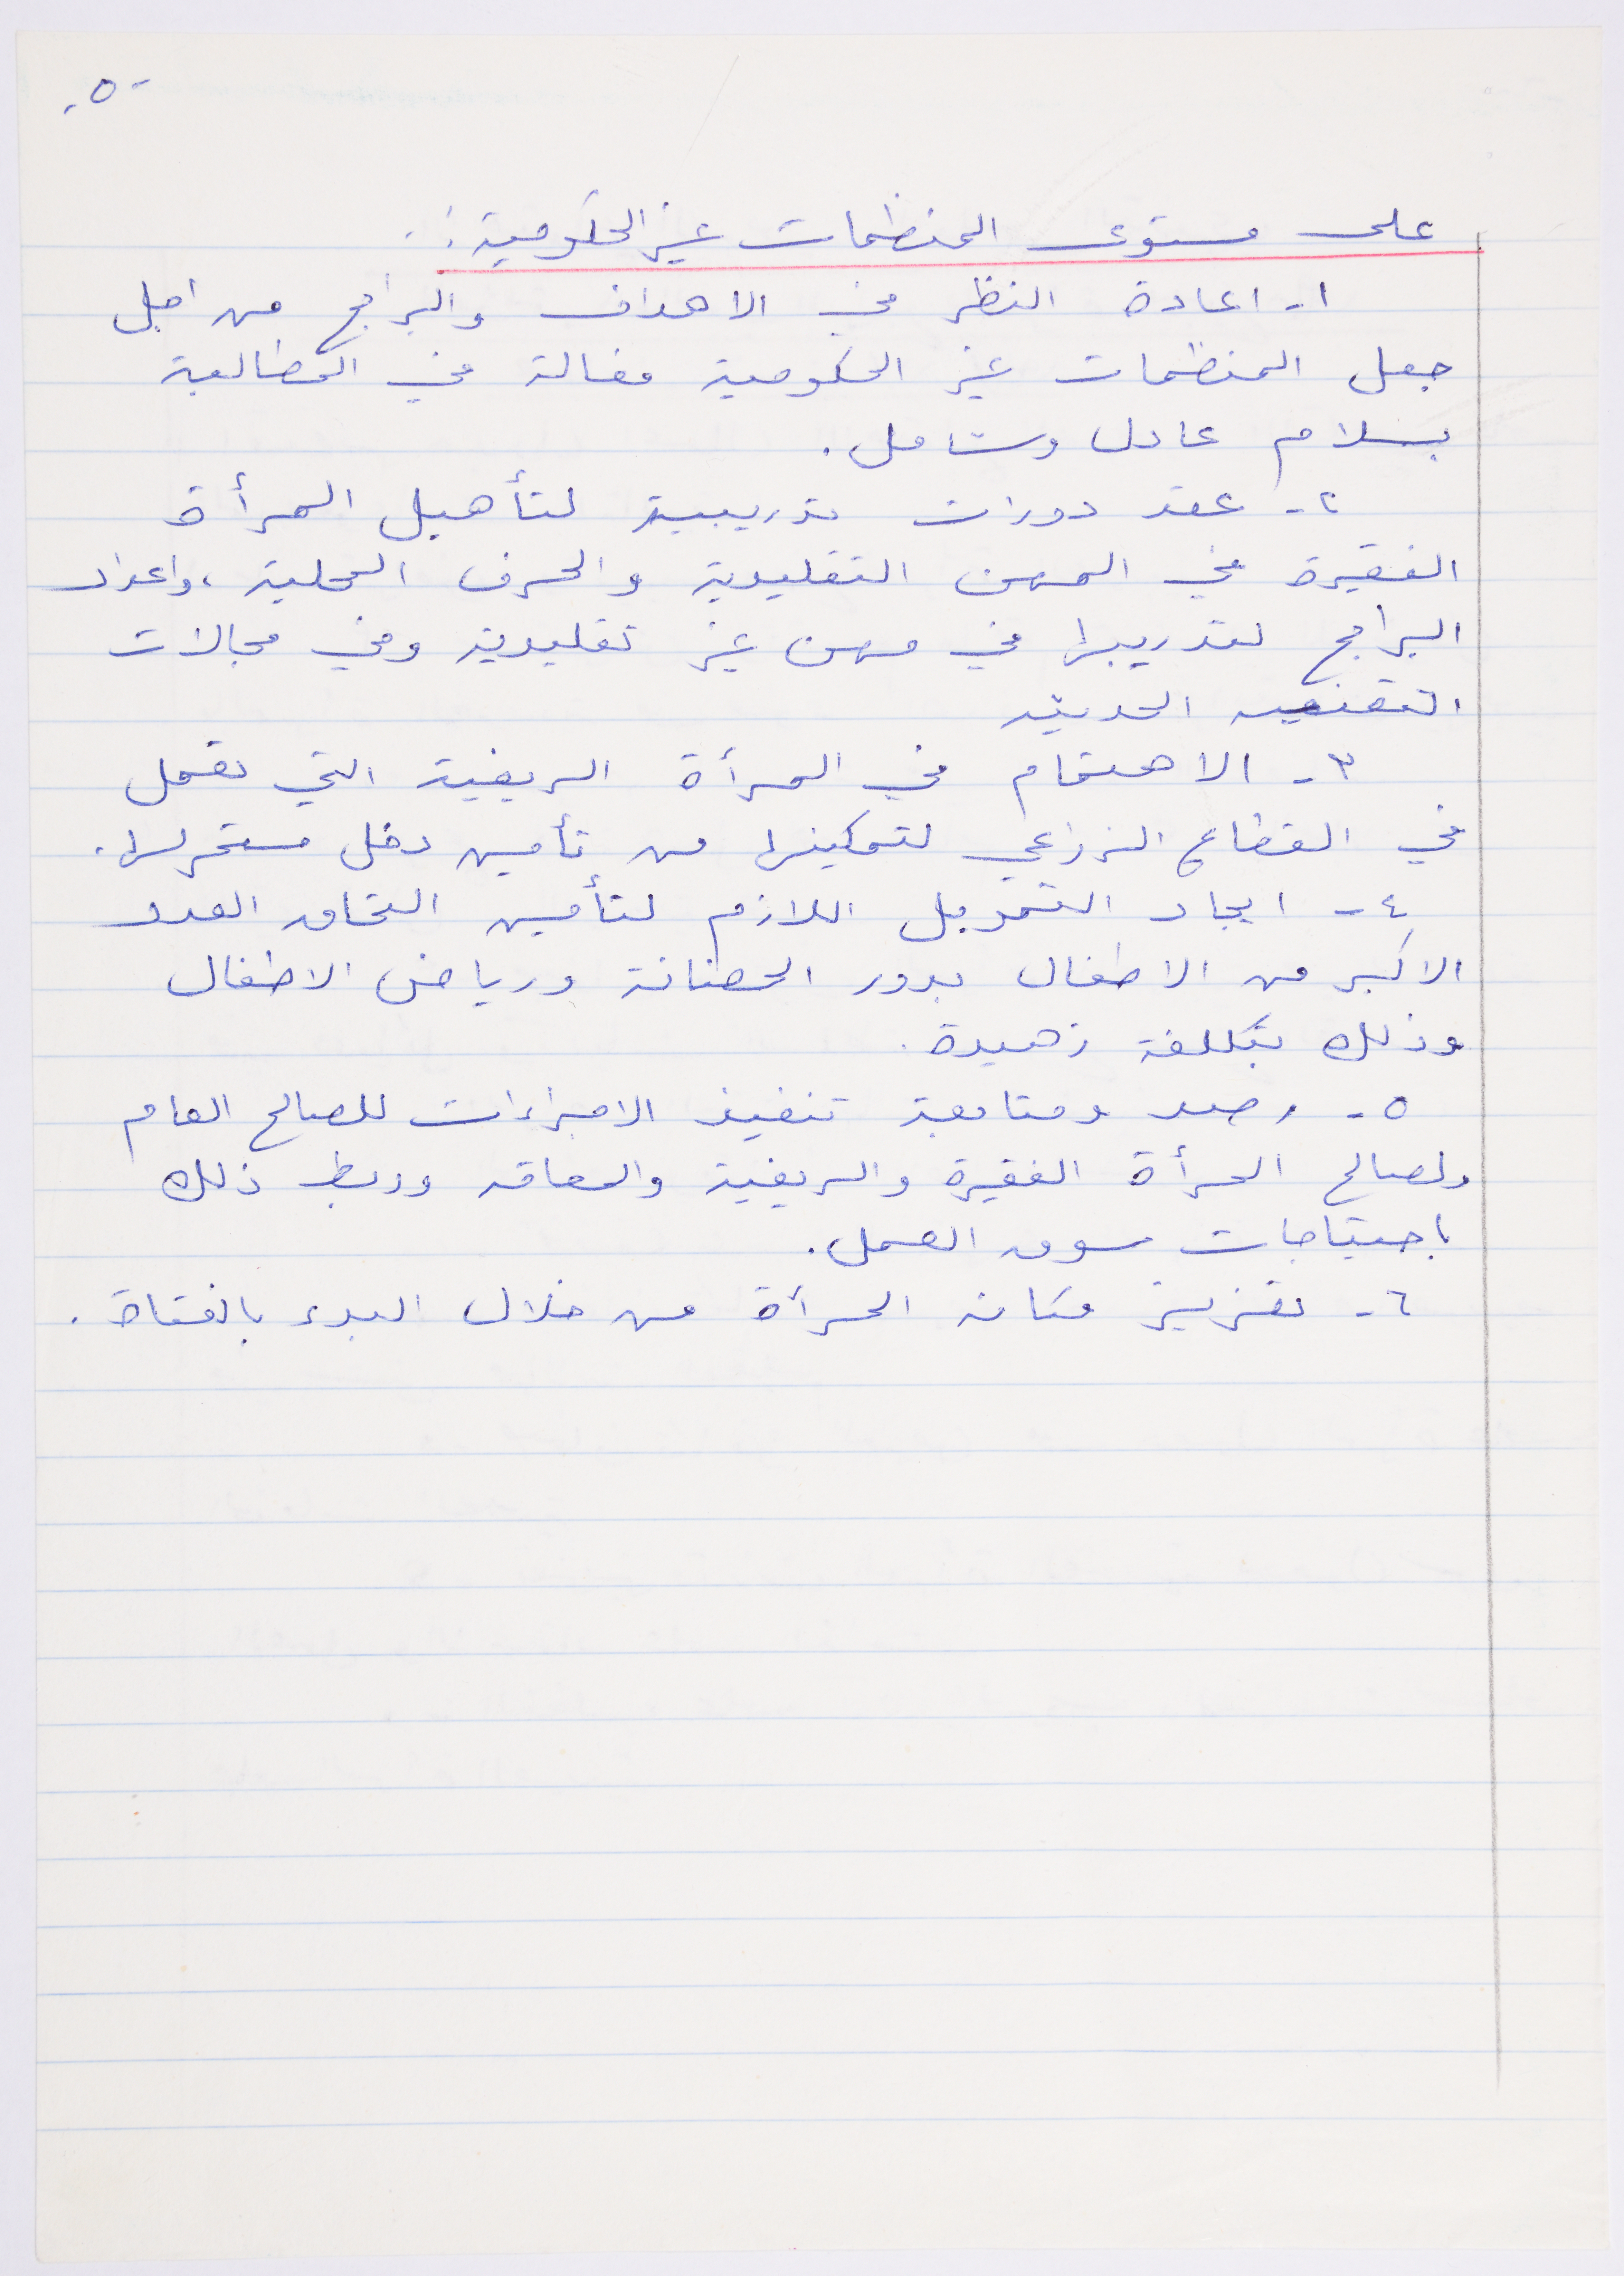 -٥-
على مستوى المنظمات غير الحكومية :.
١- اعادة النظر في الاهداف والبرامج من اجل
جعل المنظمات غير الحكومية فعالة في المطالبة
بسلام عادل وشامل .
٢- عقد دورات تدريبية لتأهيل المرأة
الفقيرة في المهن التقليدية والحرف المحلية ، واعداد
البرامج لتدريبها في مهن غير تقليدية وفي مجالات
التقنيه الحديثه
٣- الاهتمام في المرأة الريفية التي تعمل
في القطاع الزراعي لتمكينها من تأمين دخل مستمر لها .
٤- ايجاد التمويل اللازم لتأمين التحاق العدد
الاكبر من الاطفال بدور الحضانة ورياض الاطفال
وذلك بتكلفة زهيدة .
٥- رصد ومتابعة تنفيذ الاجراءات للصالح العام
ولصالح المرأة الفقيرة والريفية والمعاقه وربط ذلك
باحتياجات سوق العمل .
٦- تعزيز مكانه المرأة من خلال البدء بالفتاة .